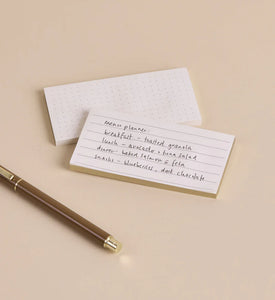 menu planner:
breakfast - toasted granola
lunch - avocado + tuna salad
dinner - baked salmon + feta
snacks - blueberries, dark chocolate